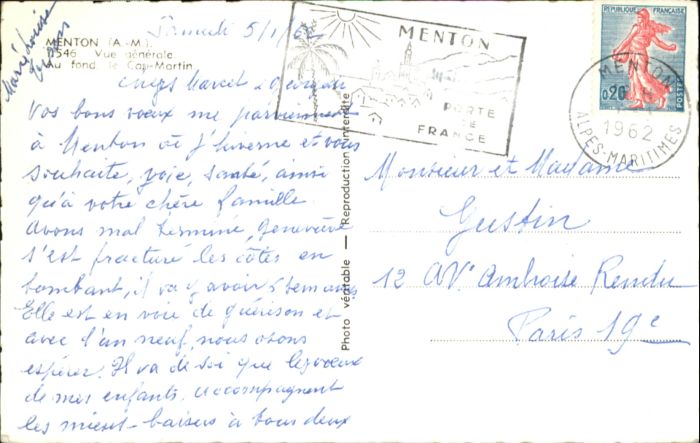 Samedi 5/1/62
MENTON (A.-M.)
1546 Vue générale
Au fond, le Cap-Martin
Chers Marcel
Vos bons vœux me parviennent
à Menton où j'hiverne et vous
souhaite, joie, santé, ainsi
qu'à votre chère famille.
Avons mal terminé, Geneviève
s'est fracturé les côtes en
tombant, il va y avoir 5 semaines
Elle est en voie de guérison et
avec l'an neuf, nous osons
espérer. Il va de soi que les vœux
de mes enfants, accompagnent
les miens - baisers à tous deux
Photo véritable — Reproduction interdite
MENTON
PORTE
DE
FRANCE
0,20
POSTES
MENTON
1962
ALPES-MARITIMES
Monsieur et Madame
Gustin
12 AV. Ambroise Rendu
Paris 19e